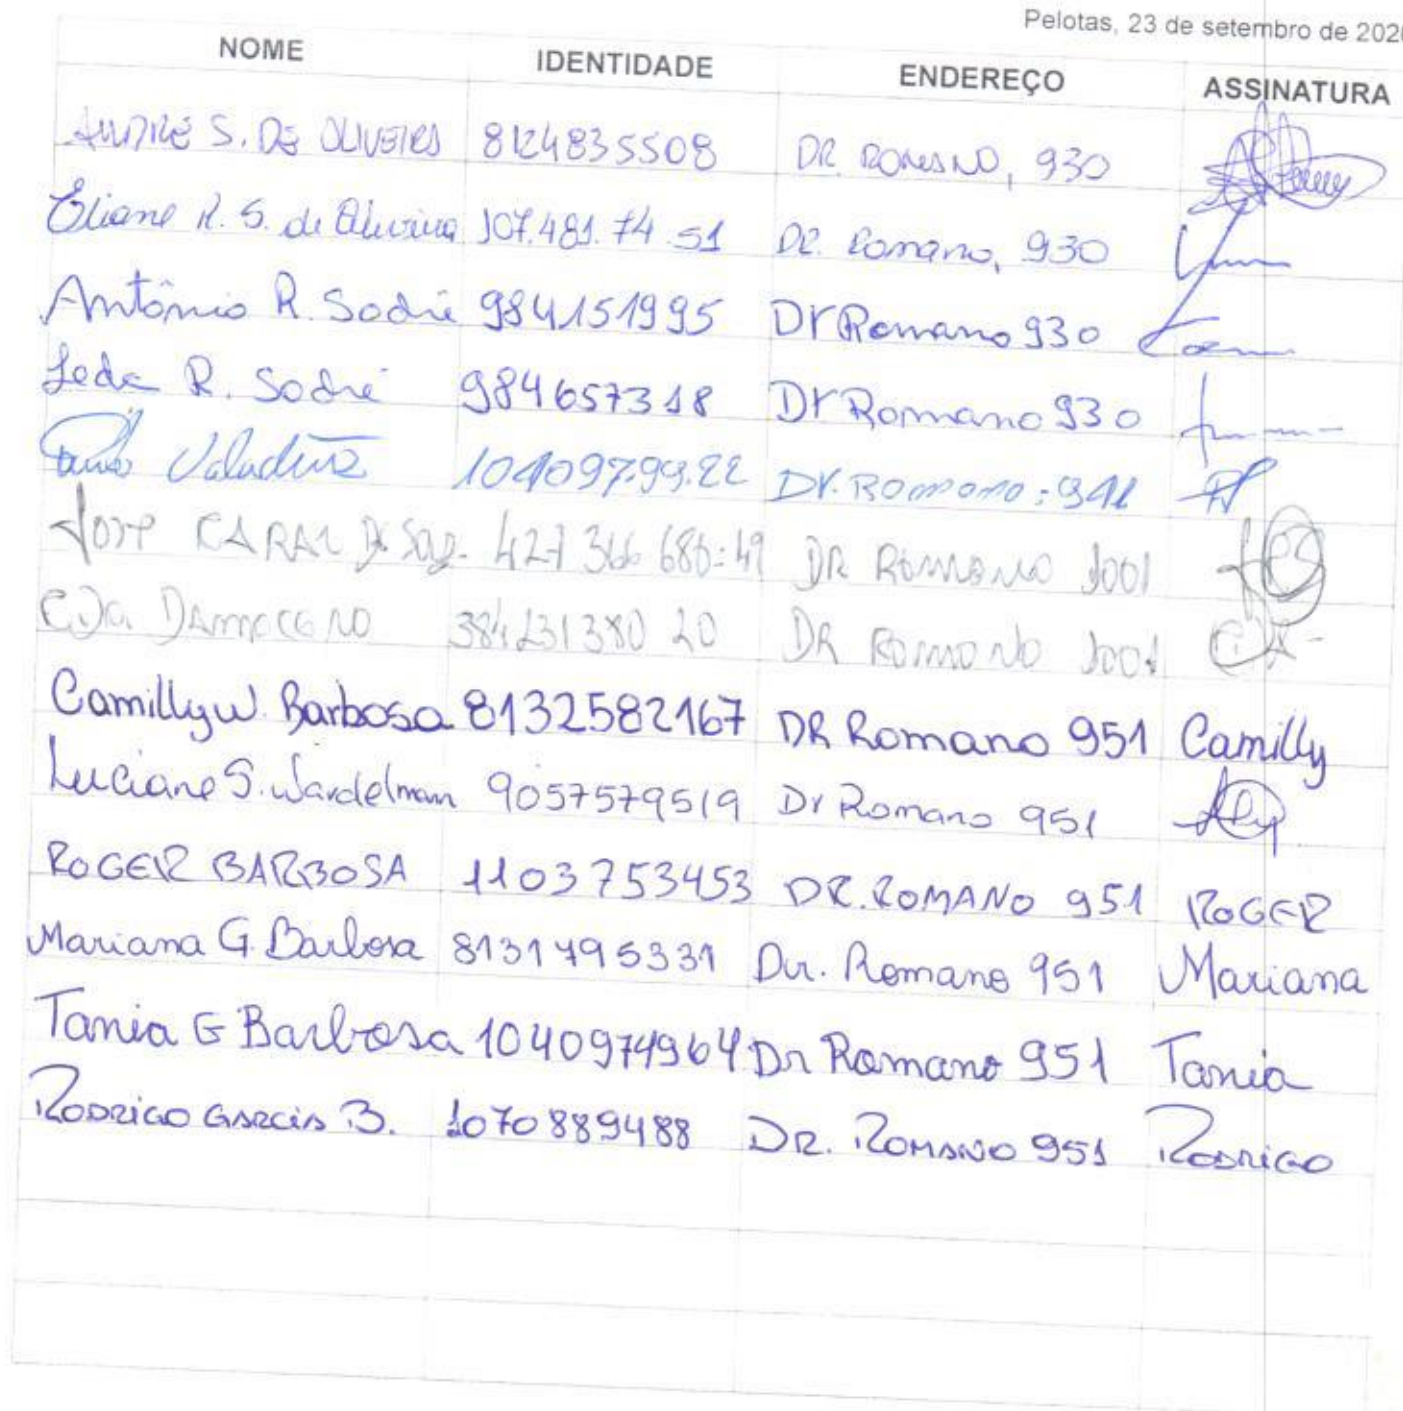 Pelotas, 23 de setembro de 2020
NOME IDENTIDADE ENDEREÇO ASSINATURA
ANDRÉ S. DE OLIVEIRA 8124835508 DR. ROMANO, 930
Eliane R. S. de Oliveira 107.481.74.51 DR. Romano, 930
Antônio R. Sodré 984151995 Dr Romano 930
Leda R. Sodré 984657318 Dr Romano 930
104097.99.22 DR. Romano: 941
DE 427 366 680-49 DR ROMANO 1001
384231380 20 DR ROMANO 1001
Camilly W. Barbosa 8132582167 DR Romano 951 Camilly
Luciane S. Wardelmam 9057579519 Dr Romano 951
ROGER BARBOSA 1103753453 DR. ROMANO 951 ROGER
Mariana G. Barbosa 8131795331 Dr. Romano 951 Mariana
Tania G Barbosa 1040974964 Dr Romano 951 Tania
RODRIGO GARCIA B. 1070889488 DR. ROMANO 951 RODRIGO